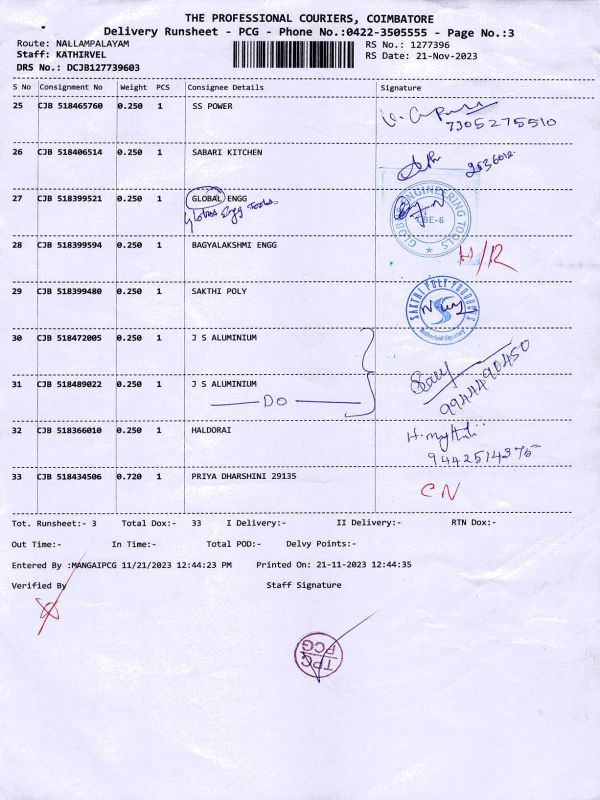 THE PROFESSIONAL COURIERS, COIMBATORE
Delivery Runsheet - PCG - Phone No.:0422-3505555 - Page No.:3
Route: NALLAMPALAYAM RS No.: 1277396
Staff: KATHIRVEL RS Date: 21-Nov-2023
DRS No.: DCJB127739603
S No Consignment No Weight PCS Consignee Details Signature
25 CJB 518465760 0.250 1 SS POWER
7305275510
26 CJB 518406514 0.250 1 SABARI KITCHEN
27 CJB 518399521 0.250 1 GLOBAL ENGG
Global Engg Tools
GLOBAL ENGINEERING TOOLS
CBE-6
28 CJB 518399594 0.250 1 BAGYALAKSHMI ENGG
H/R
29 CJB 518399480 0.250 1 SAKTHI POLY
SAKTHI POLY PRODUCTS
Authorised Signatory
30 CJB 518472005 0.250 1 J S ALUMINIUM
31 CJB 518489022 0.250 1 J S ALUMINIUM
DO
9944490450
32 CJB 518366010 0.250 1 HALDORAI
33 CJB 518434506 0.720 1 PRIYA DHARSHINI 29135
CN
Tot. Runsheet:- 3 Total Dox:- 33 I Delivery:- II Delivery:- RTN Dox:-
Out Time:- In Time:- Total POD:- Delvy Points:-
Entered By :MANGAIPCG 11/21/2023 12:44:23 PM Printed On: 21-11-2023 12:44:35
Verified By Staff Signature
TPC
PCG